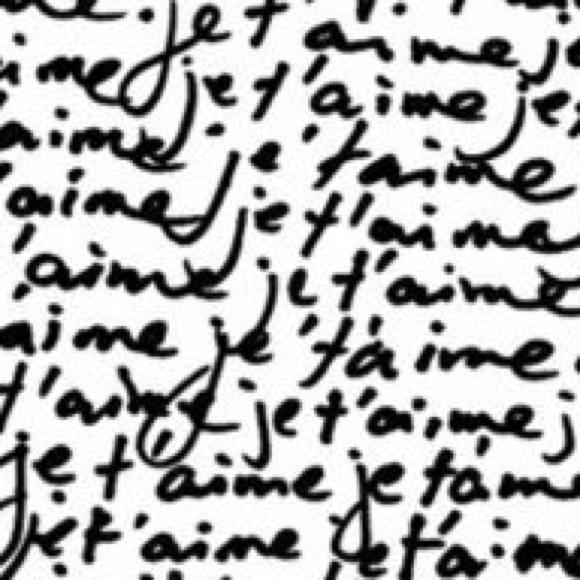 je t'
aime je t'aime j
aime je t'aime je
aime je t'aime
'aime je t'aime
'aime je t'aime
aime je t'aime
t'aime je t'aime j
je t'aime je t'aime
je t'aime je t'aime